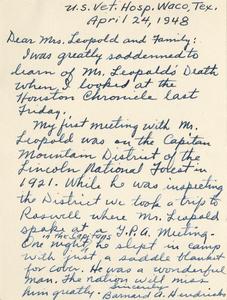 U.S. Vet. Hosp. Waco, Tex.
April 24, 1948
Dear Mrs. Leopold and Family:
I was greatly saddened to
learn of Mr. Leopold's Death
when I looked at the
Houston Chronicle last
Friday.
My first meeting with Mr.
Leopold was on the Capitan
Mountain District of the
Lincoln National Forest in
1921. While he was inspecting
the District we took a trip to
Roswell where Mr. Leopold
spoke at a G.P.A. Meeting.
in the Capitans
One night he slept in camp
with just a saddle blanket
for cover. He was a wonderful
man. The nation will miss
him greatly. Sincerely
Barnard A. Hendricks